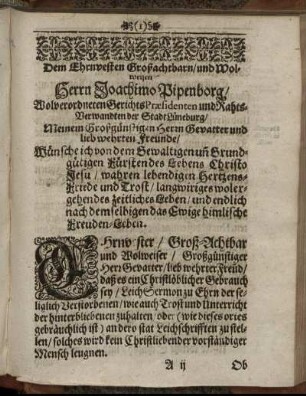 (1)
Dem Ehrnvesten Großachtbarn/und Wol-
weisen
Herrn Joachimo Pipenborg/
Wolverordneten Gerichts Præsidenten und Rahts-
Verwandten der Stadt Lüneburg/
Meinem Großgünstigen Herrn Gevatter und
lieb wehrten Freunde/
Wünsche ich von dem Gewaltigen uñ Grund-
gütigen Fürsten des Lebens Christo
Jesu/wahren lebendigen Hertzens-
Friede und Trost/langwiriges woler-
gehendes zeitliches Leben/und endlich
nach demselbigen das Ewige himlische
Freuden-Leben.
EHrnvester/Groß-Achtbar
und Wolweiser/Großgünstiger
Herr Gevatter/lieb wehrter Freund/
daß es ein Christlöblicher Gebrauch
sey/Leich Sermon zu Ehrn der se-
liglich Verstorbenen/wie auch Trost und Unterricht
der hinterbliebenen zuhalten/oder (wie dieses ortes
gebräuchlich ist) an dero stat Leichschrifften zu stel-
len/solches wird kein Christliebender vorständiger
Mensch leugnen.
A ij Ob